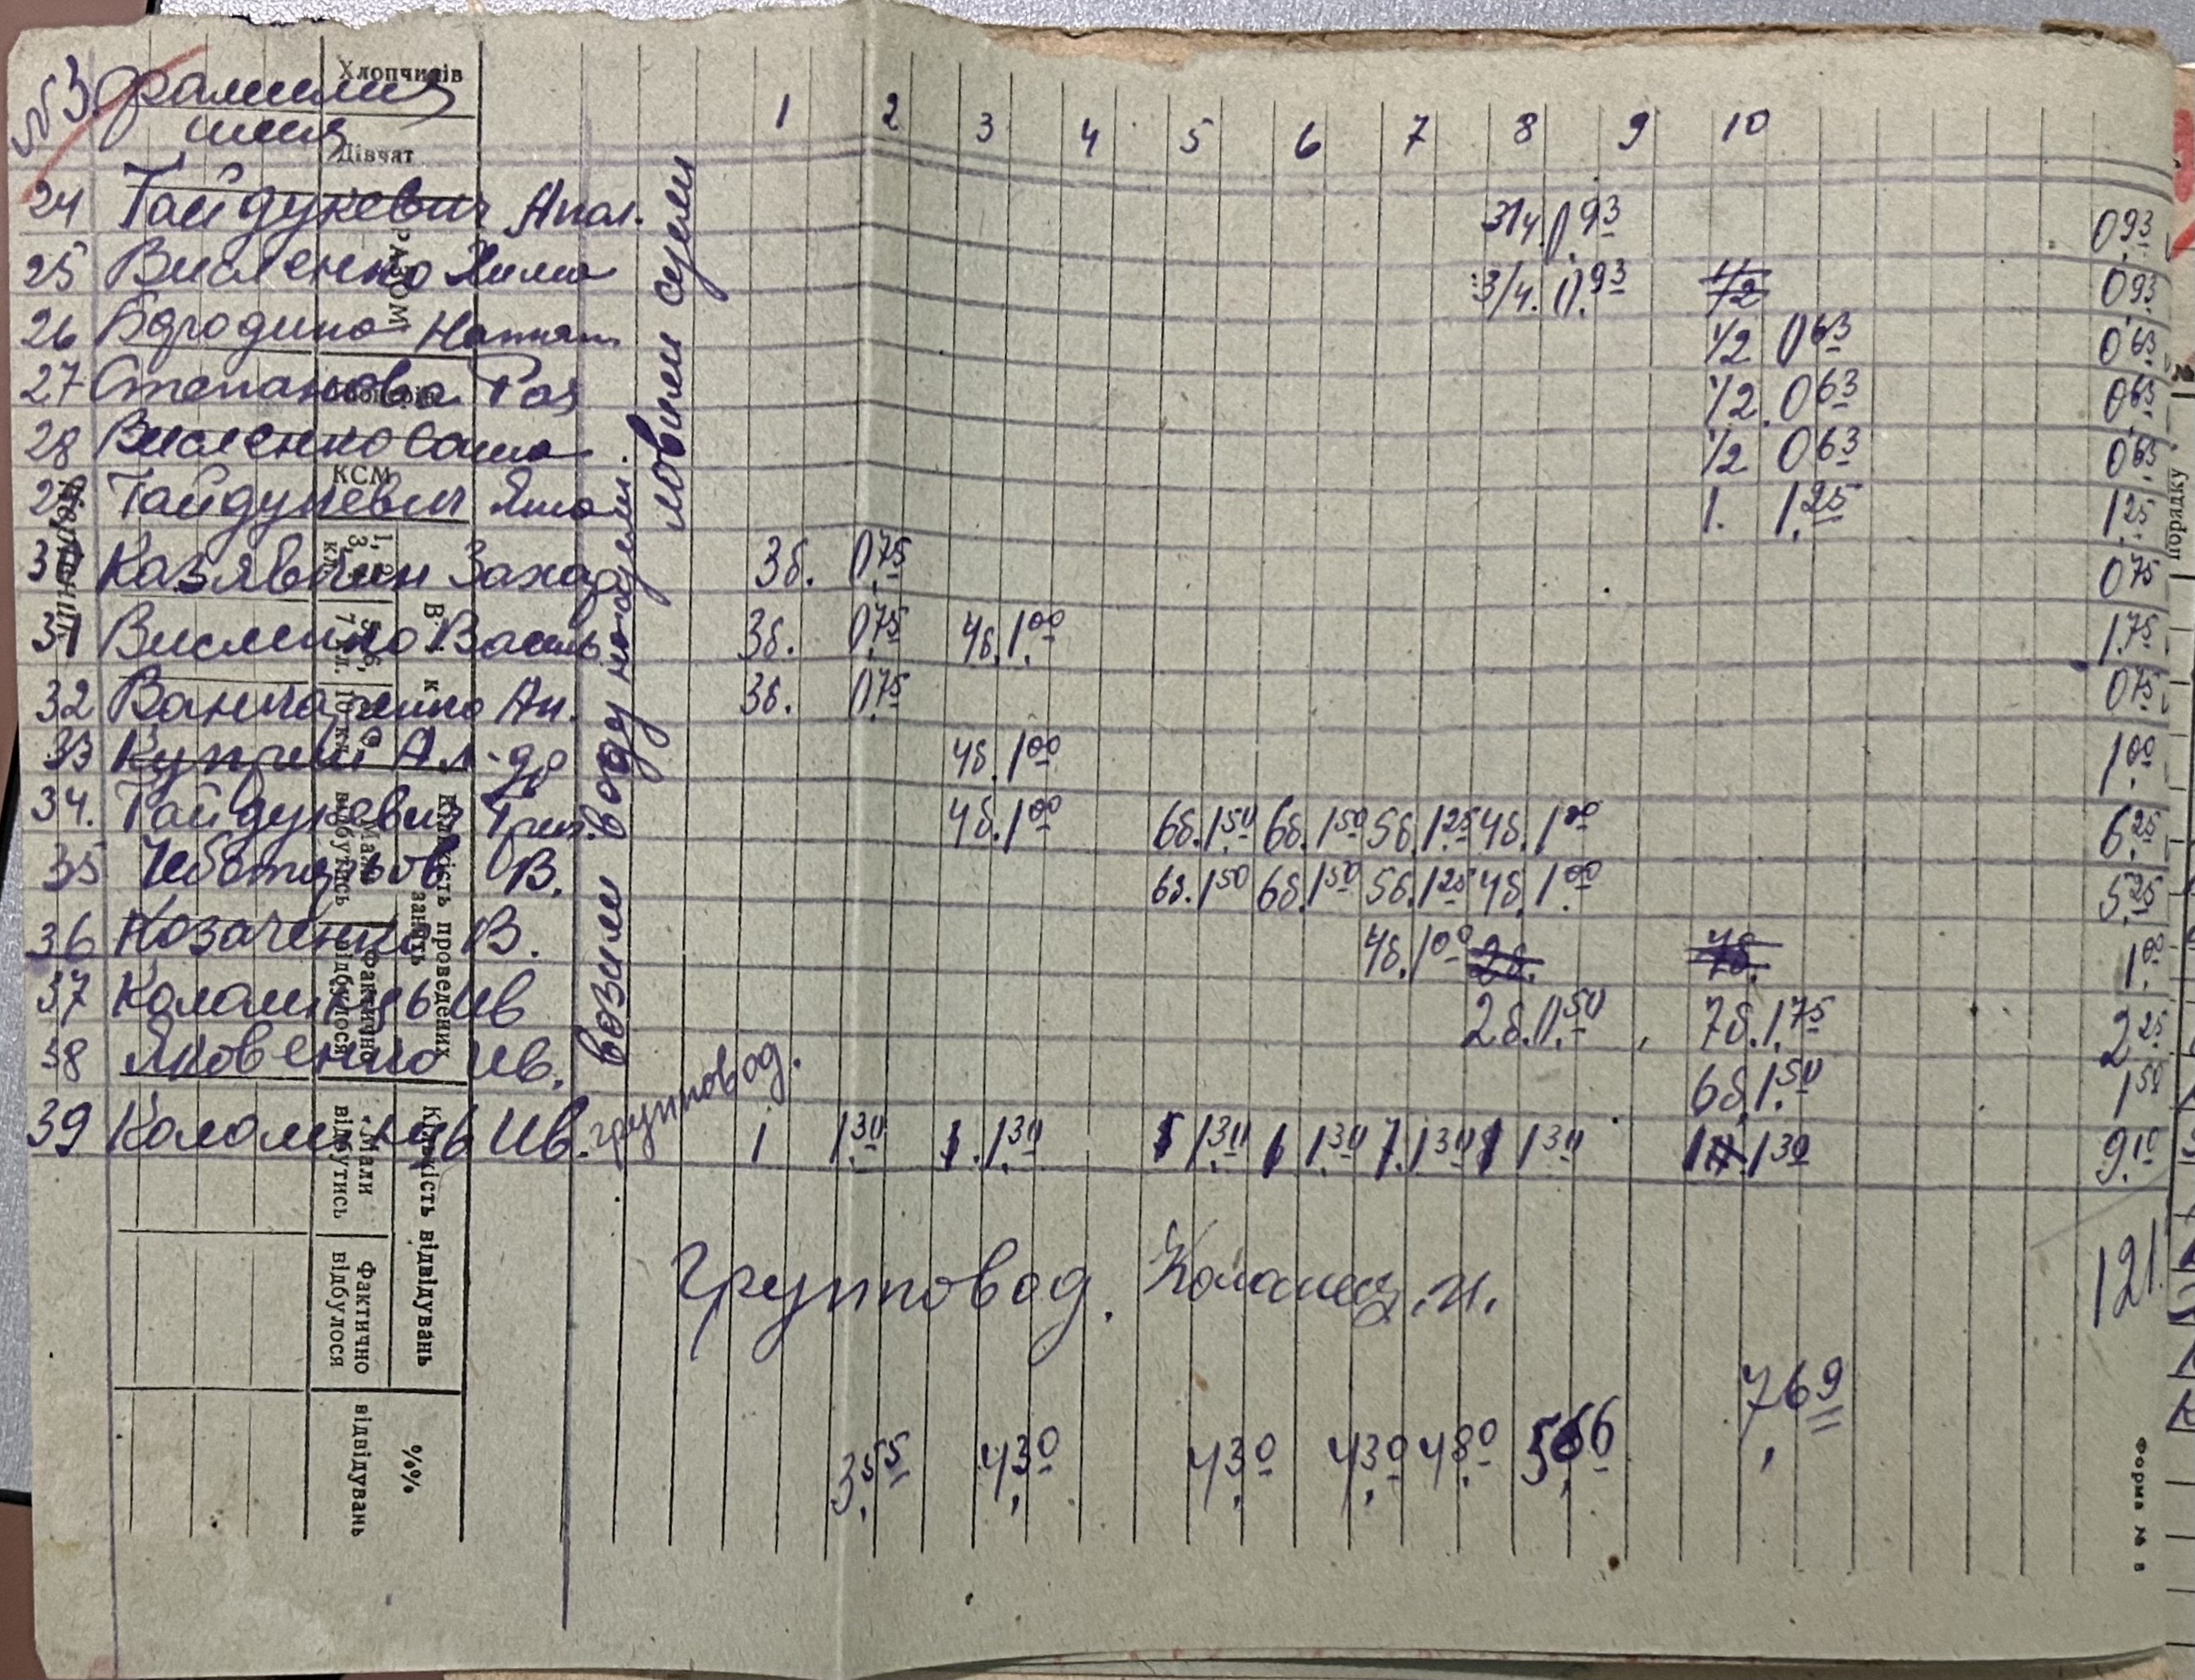 № 3. фамилия
имя
1 2 3 4 5 6 7 8 9 10
24 Гайдукевич Апол. 3/4. 0.93 0.93
25 Висленко Хима 3/4. 0.93 1/2 0.93
26 Бородина Наталя 1/2 0.63 0.63
27 Степанова Рая 1/2. 0.63 0.63
28 Висленко Саша 1/2 0.63 0.63
29 Гайдукевич Яша 1. 1.25 1.25
30 Казявчин Захар 3б. 0.75 0.75
31 Висленко Василь 3б. 0.75 4б. 1.00 1.75
32 Ан. 3б. 0.75 0.75
33 Куприй Ал-др 4б. 1.00 1.00
34. Гайдукевич Григ. 4б. 1.00 6б. 1.50 6б. 1.50 5б. 1.25 4б. 1.00 6.25
35 В. 6б. 1.50 6б. 1.50 5б. 1.25 4б. 1.00 5.25
36 Козаченко В. 4б. 1.00 2б. 7б. 1.00
37 Коломиец Ив 2б. 0.50 7б. 1.75 2.25
38 Яковенко Ив. 6б. 1.50 1.50
39 Коломиец Ив. групповод. 1 1.30 1. 1.30 1 1.30 1 1.30 1. 1.30 1 1.30 1 1.30 9.10
возили воду на коней.
ловили сусли
Групповод. Коломиец. И.
121
3.55 4.30 4.30 4.30 4.80 5.66 7.69
Хлопчиків
Дівчат
РАЗОМ
КСМ
В к
Кількість проведених занять
Мали відбутись
Фактично відбулося
Кількість відвідувань
Мали відбутись
Фактично відбулося
%% відвідувань
порядку
Форма № 8